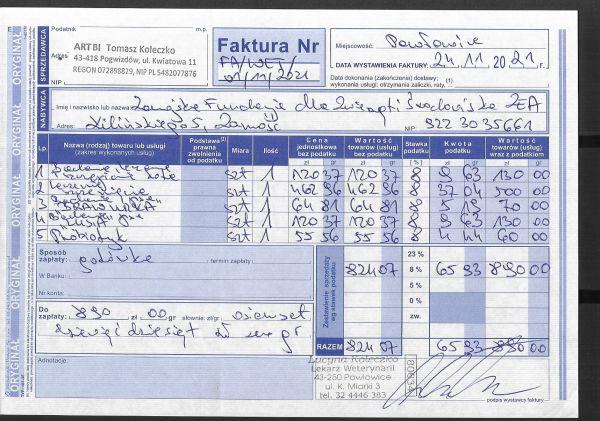 ORYGINAŁ
SPRZEDAWCA
Podatnik
m.p.
ARTBI Tomasz Kołeczko
Adres
43-418 Pogwizdów, ul. Kwiatowa 11
REGON 072898829, NIP PL 5482077876
Faktura Nr
FA/WET/
01/11/2021
Miejscowość: Pawłowice
DATA WYSTAWIENIA FAKTURY: 24.11 2021 r.
Data dokonania (zakończenia) dostawy;
wykonania usługi; otrzymania zaliczki, raty,
NABYWCA
Imię i nazwisko lub nazwa Zamojska Fundacja dla Zwierząt i Środowiska ZEA
Adres: Kilińskiego Zamość
NIP: 922 3035661
Lp.
Nazwa (rodzaj) towaru lub usługi
(zakres wykonanej usługi)
Podstawa prawna zwolnienia od podatku
Miara
Ilość
Cena jednostkowa bez podatku
Wartość towarów (usług) bez podatku
Stawka podatku
Kwota podatku
Wartość towarów (usług) wraz z podatkiem
zł gr zł gr % zł gr zł gr
1 szt 1 120 37 120 37 8 9 63 130 00
2 szt 1 462 96 462 96 8 37 04 500 00
3 szt 1 64 81 64 81 8 5 19 70 00
4 szt 1 120 37 120 37 8 9 63 130 00
5 Probiotyk szt 1 55 56 55 56 8 4 44 60 00
Sposób
zapłaty: gotówka
termin zapłaty
W Banku:
Nr konta:
Zestawienie sprzedaży wg stawek podatku
23 %
824 07 8 % 65 93 890 00
5 %
0 %
zw.
RAZEM 824 07 65 93 890 00
Do
zapłaty: 890 zł 00 gr słownie: zł/gr osiemset
dziewięćdziesiąt zł zero gr
Adnotacje:
Lucyna Kołeczko
Lekarz Weterynarii
43-250 Pawłowice
ul. K. Miarki 3
tel. 32 4446 383
podpis wystawcy faktury